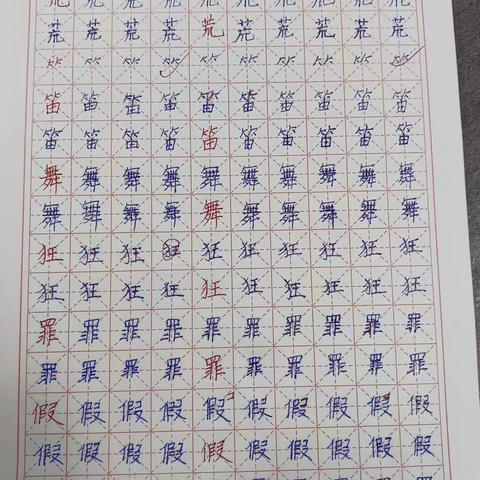 荒荒荒荒荒荒荒荒荒荒
⺮⺮⺮⺮⺮⺮⺮⺮⺮⺮
笛笛笛笛笛笛笛笛笛笛
笛笛笛笛笛笛笛笛笛笛
舞舞舞舞舞舞舞舞舞舞
舞舞舞舞舞舞舞舞舞舞
狂狂狂狂狂狂狂狂狂狂
狂狂狂狂狂狂狂狂狂狂
罪罪罪罪罪罪罪罪罪罪
罪罪罪罪罪罪罪罪罪罪
假假假假假假假假假假
假假假假假假假假假假